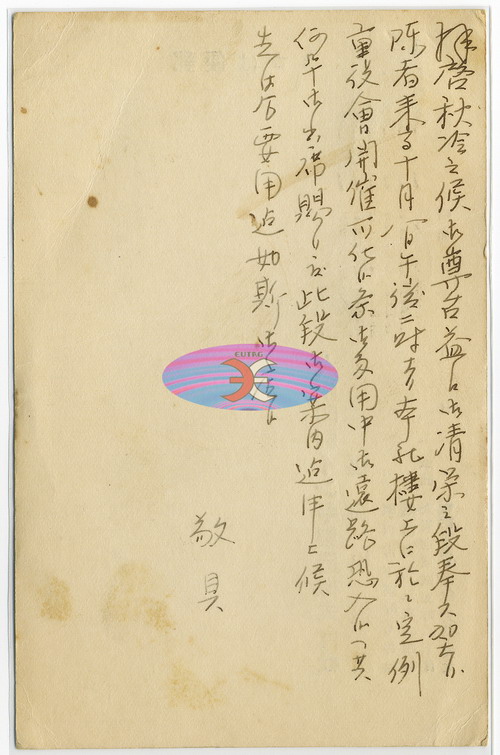 拝啓秋冷之候御尊台益々御清栄之段奉大賀候
陳者来る十月八日午後二時より本社楼上に於て定例
重役会開催可仕候条御多用中御遠路恐入候へ共
何卒御出席賜り度此段御案内迄申上候
先は右要用迄如斯御座候
敬具